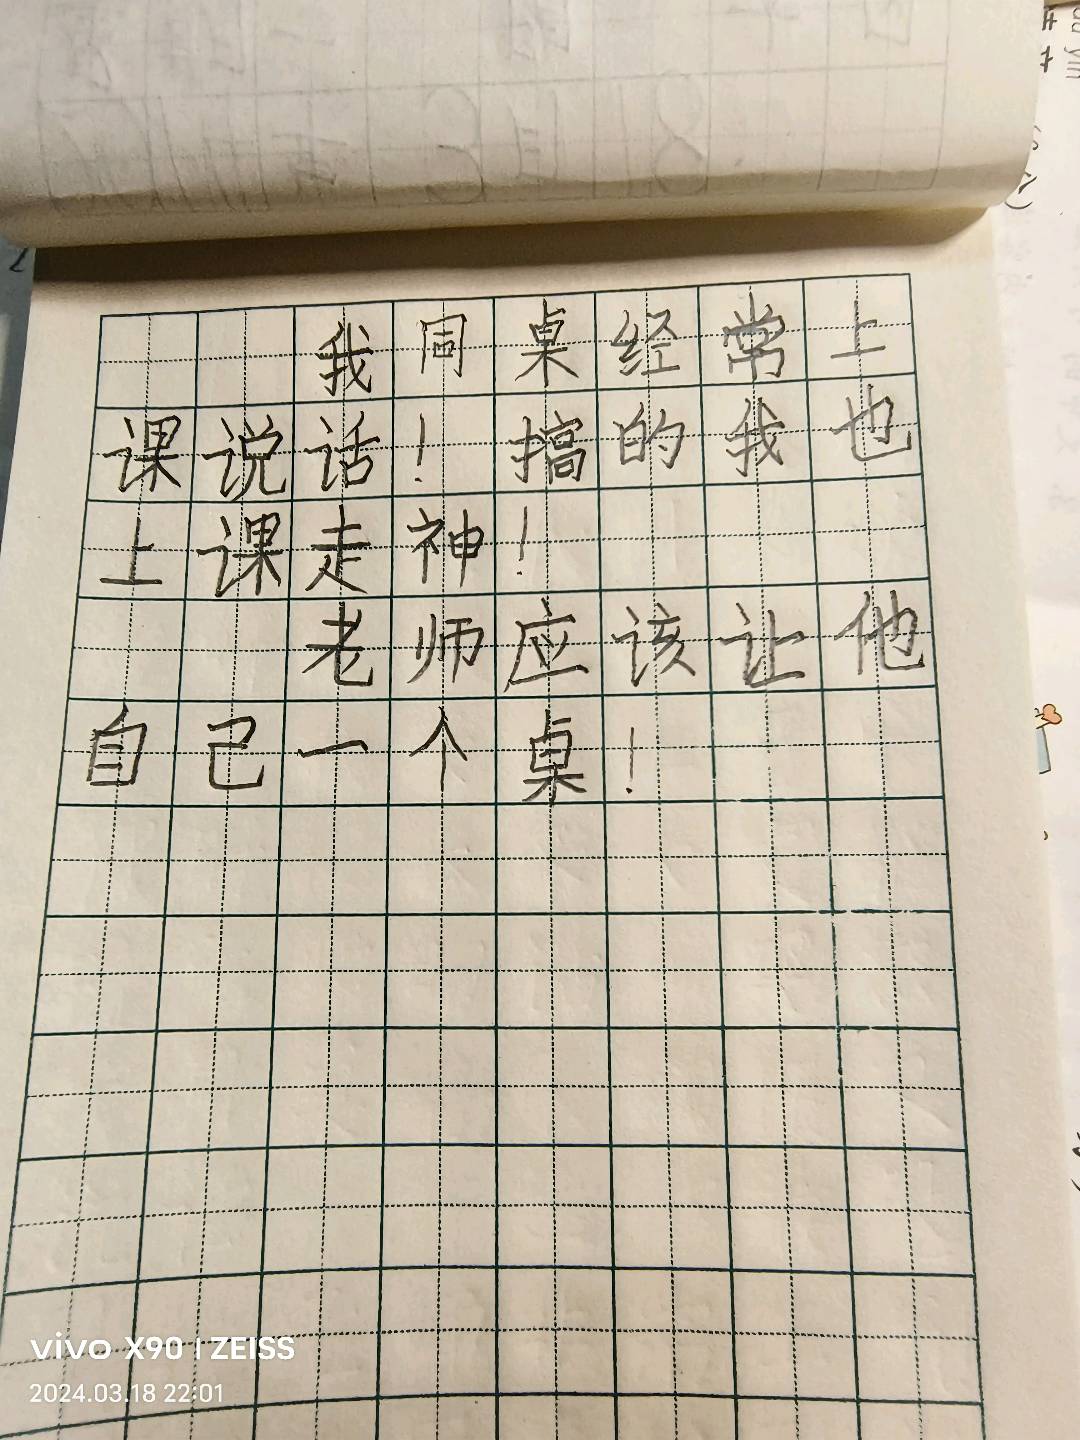 我同桌经常上
课说话！搞的我也
上课走神！
老师应该让他
自己一个桌！
vivo X90 | ZEISS
2024.03.18 22:01